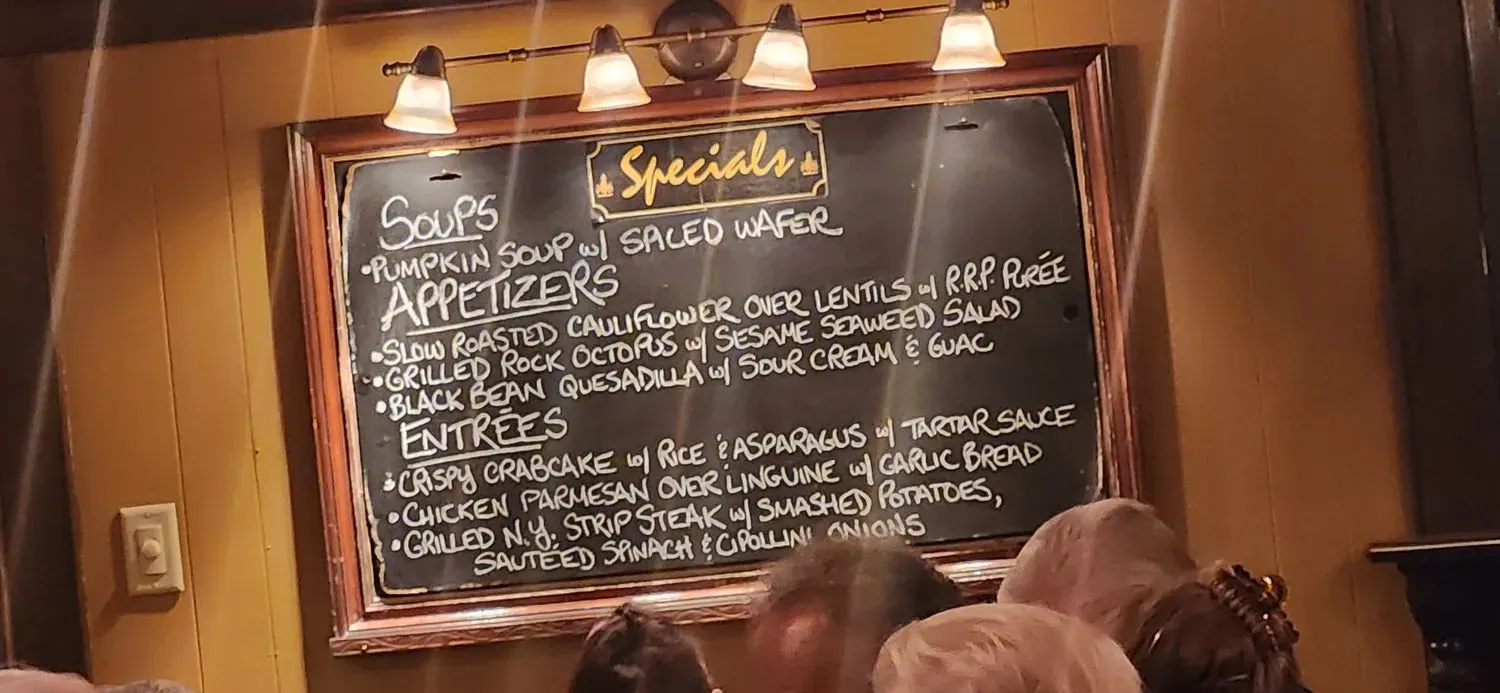 Specials
SOUPS
•PUMPKIN SOUP w/ SPICED WAFER
APPETIZERS
•SLOW ROASTED CAULIFLOWER OVER LENTILS w/ R.R.P. PURÉE
•GRILLED ROCK OCTOPUS w/ SESAME SEAWEED SALAD
•BLACK BEAN QUESADILLA w/ SOUR CREAM & GUAC
ENTRÉES
•CRISPY CRABCAKE w/ RICE & ASPARAGUS w/ TARTAR SAUCE
•CHICKEN PARMESAN OVER LINGUINE w/ GARLIC BREAD
•GRILLED N.Y. STRIP STEAK w/ SMASHED POTATOES,
SAUTÉED SPINACH & CIPOLLINI ONIONS